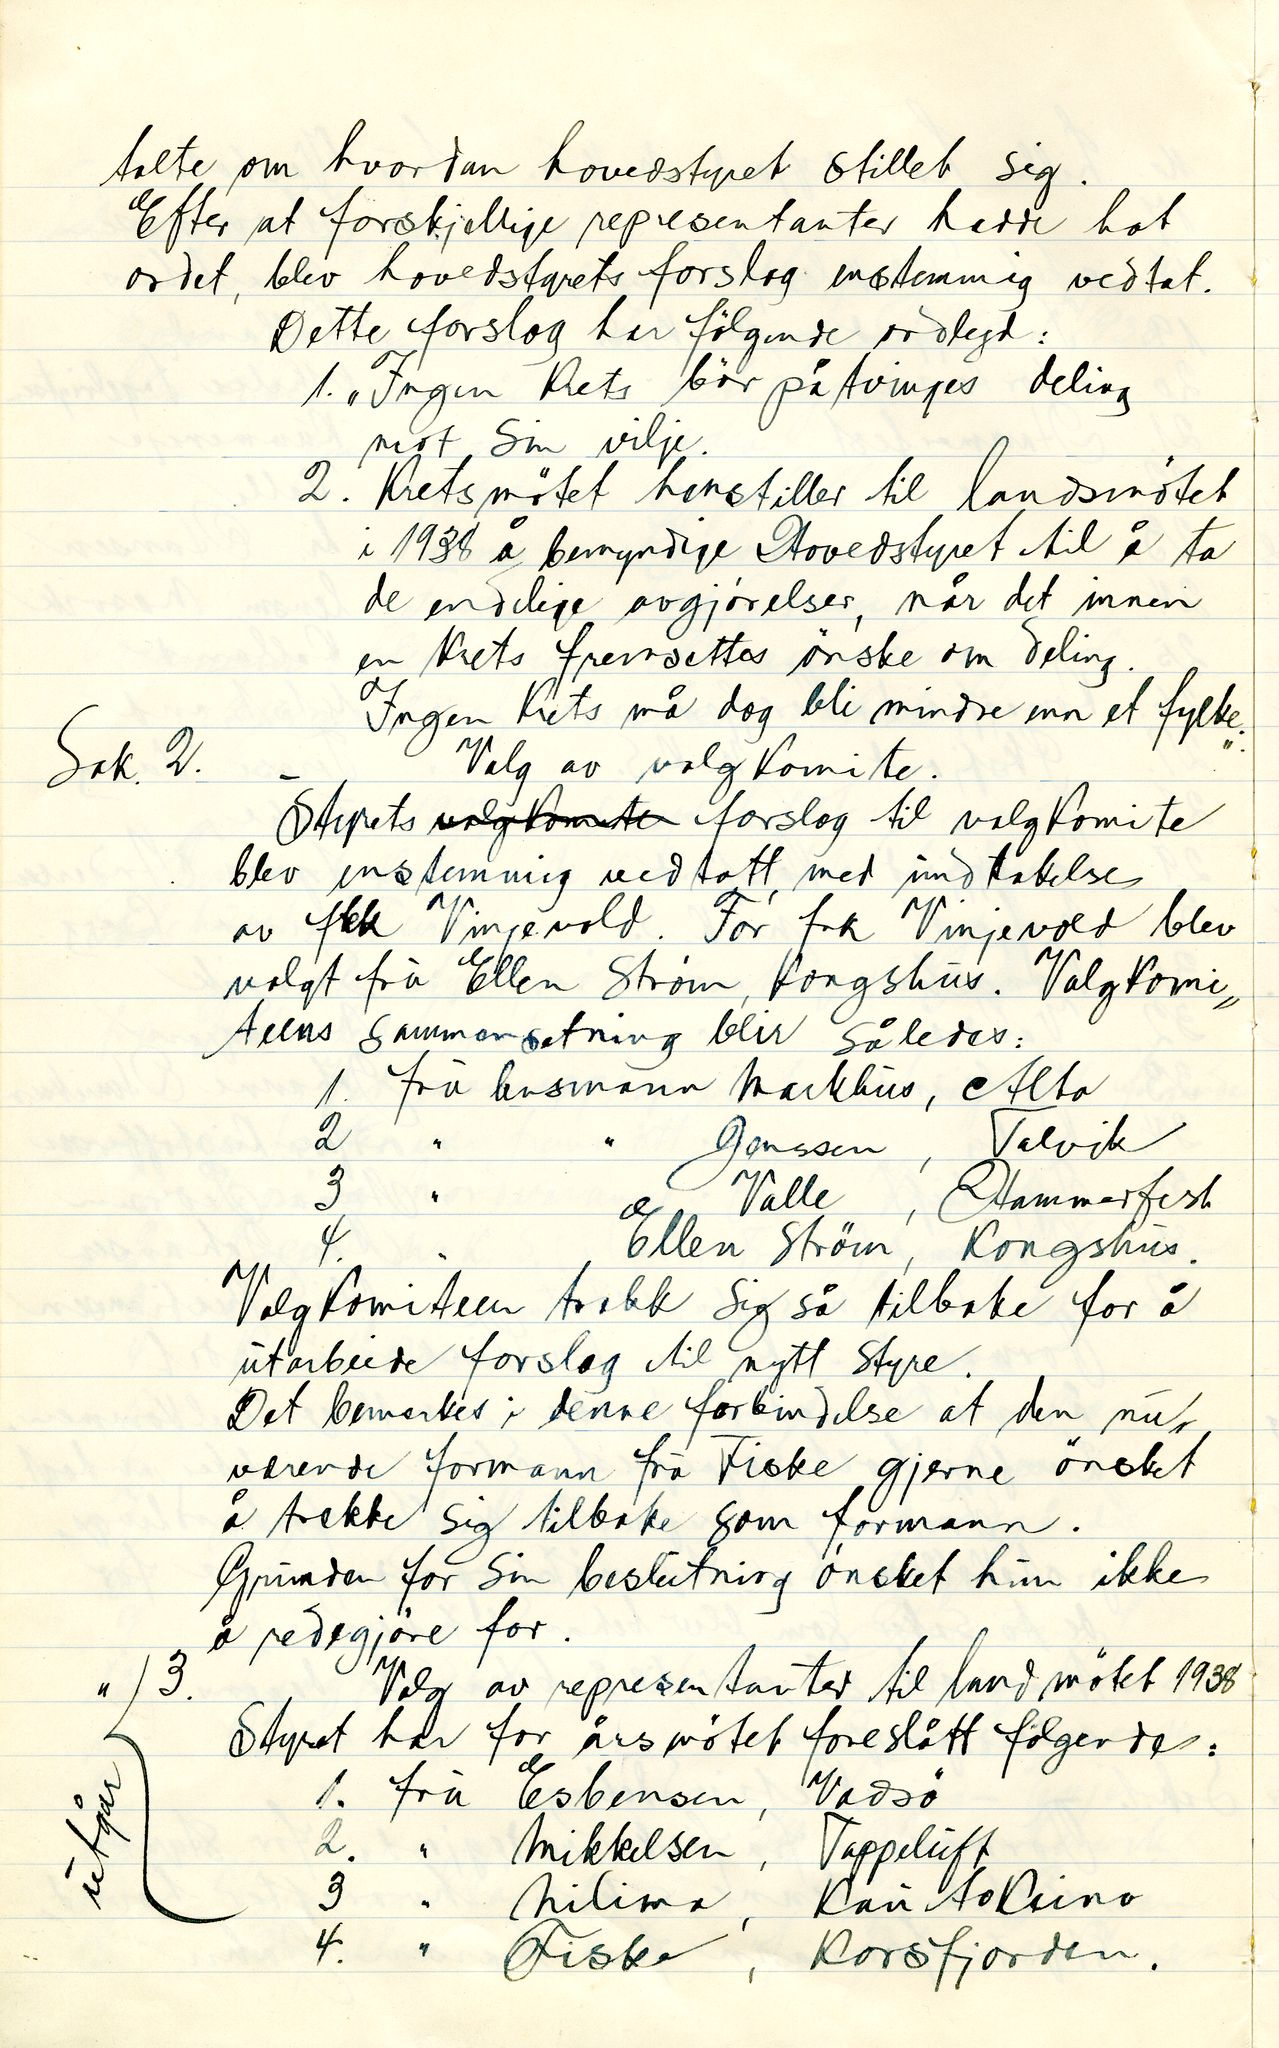 talte om hvordan hovedstyret stillet sig.
Efter at forskjellige representanter hadde hat
ordet, blev hovedstyrets forslag enstemmig vedtat.
Dette forslag har følgende ordlyd:
1. „Ingen Krets bör påtvinges deling
mot sin vilje.
2. Kretsmötet henstiller til landsmötet
i 1938 å bemyndige Hovedstyret til å ta
de endelige avgjörelser, når det innen
en Krets fremsettes önske om deling.
Ingen Krets må dog bli mindre enn et fylke."
Sak. 2. Valg av valgkomite.
Styrets valgkomite forslag til valgkomite
blev enstemmig vedtatt, med undtakelse
av frk Vinjevold. For frk Vinjevold blev
valgt frü Ellen Ström, Kongshüs. Valgkomi„
teens sammensetning blir således:
1. frü lensmann Markhüs, Alta
2 " " Jenssen, Talvik
3 " Valle, Hammerfest
4. " Ellen Ström, Kongshüs.
Valgkomiteen trakk sig så tilbake for å
ütarbeide forslag til nytt styre.
Det bemerkes i denne forbindelse at den nü„
værende formann frü Fiske gjerne önsket
å trekke sig tilbake som formann.
Gründen for sin beslütning önsket hün ikke
å redegjöre for.
" 3. Valg av representanter til landmötet 1938
Styret har for årsmötet foreslått fölgende:
1. frü Esbensen, Vadsö
2. " Mikkelsen, Tappelüft
3 " Nilima, Kaütokeino
4. " Fiske, Korsfjorden.
ütgår